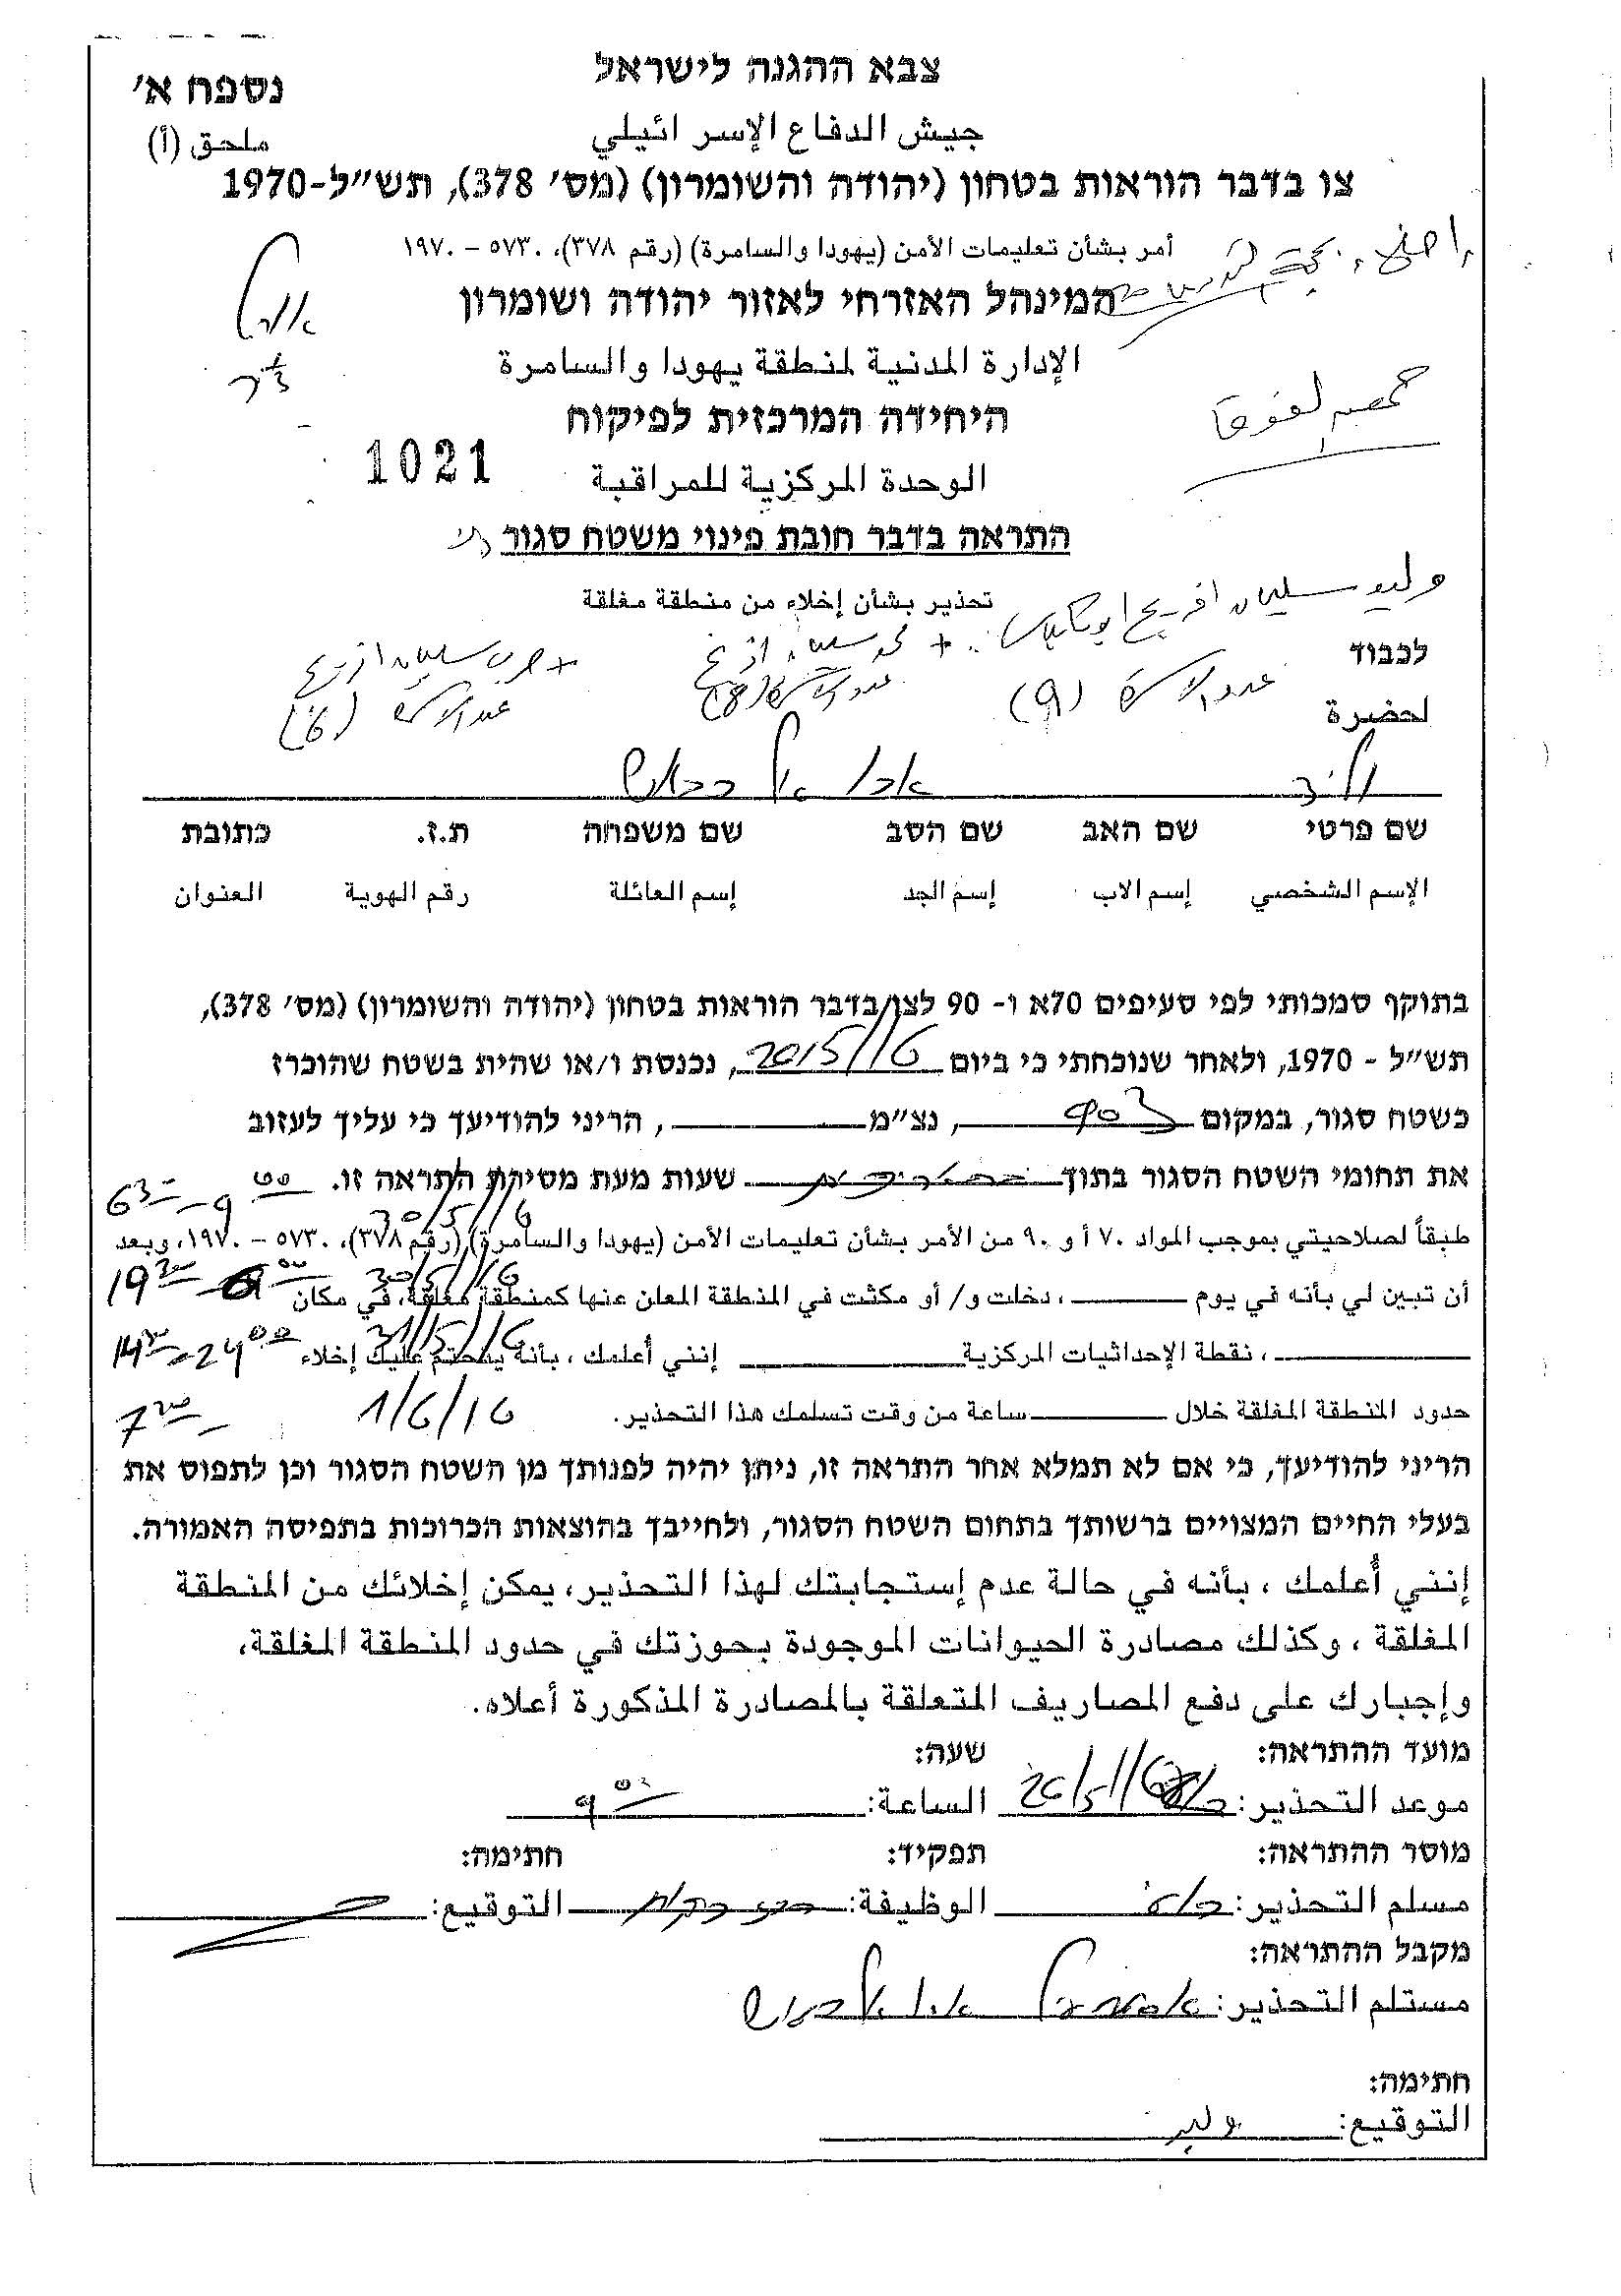 צבא ההגנה לישראל
נספח א׳
جيش الدفاع الإسرائيلي
ملحق (أ)
צו בדבר הוראות בטחון (יהודה והשומרון) (מס׳ 378), תש״ל-1970
أمر بشأن تعليمات الأمن (يهودا والسامرة) (رقم ٣٧٨)، ٥٧٣٠ – ١٩٧٠
המינהל האזרחי לאזור יהודה ושומרון
الإدارة المدنية لمنطقة يهودا والسامرة
היחידה המרכזית לפיקוח
1021
الوحدة المركزية للمراقبة
התראה בדבר חובת פינוי משטח סגור
تحذير بشأن إخلاء من منطقة مغلقة
וליד
לכבוד
عدد الاسرة (9)
لحضرة
שם פרטי שם האב שם הסב שם משפחה ת.ז. כתובת
الإسم الشخصي إسم الاب إسم الجد إسم العائلة رقم الهوية العنوان
בתוקף סמכותי לפי סעיפים 70א ו- 90 לצו בדבר הוראות בטחון (יהודה והשומרון) (מס׳ 378),
תש״ל - 1970, ולאחר שנוכחתי כי ביום, נכנסת ו/או שהית בשטח שהוכרז
כשטח סגור, במקום 903, נצ״מ, הריני להודיעך כי עליך לעזוב
את תחומי השטח הסגור בתוך שעות מעת מסירת התראה זו. 30/5/16 6³⁰-9⁰⁰
طبقاً لصلاحيتي بموجب المواد ٧٠ أ و ٩٠ من الأمر بشأن تعليمات الأمن (يهودا والسامرة) (رقم ٣٧٨)، ٥٧٣٠ – ١٩٧٠، وبعد
أن تبين لي بأنه في يوم، دخلت و/ أو مكثت في المنطقة المعلن عنها كمنطقة مغلقة، في مكان 30/5/16
، نقطة الإحداثيات المركزية إنني أعلمك، بأنه يتحتم عليك إخلاء 31/5/16
حدود المنطقة المغلقة خلال ساعة من وقت تسلمك هذا التحذير. 1/6/16
הריני להודיעך, כי אם לא תמלא אחר התראה זו, ניתן יהיה לפנותך מן השטח הסגור וכן לתפוס את
בעלי החיים המצויים ברשותך בתחום השטח הסגור, ולחייבך בהוצאות הכרוכות בתפיסה האמורה.
إنني أعلمك، بأنه في حالة عدم إستجابتك لهذا التحذير، يمكن إخلائك من المنطقة
المغلقة، وكذلك مصادرة الحيوانات الموجودة بحوزتك في حدود المنطقة المغلقة،
وإجبارك على دفع المصاريف المتعلقة بالمصادرة المذكورة أعلاه.
מועד ההתראה: שעה:
موعد التحذير: الساعة: 9⁰⁰
מוסר ההתראה: תפקיד: חתימה:
مسلم التحذير: الوظيفة: التوقيع:
מקבל ההתראה:
مستلم التحذير:
חתימה:
التوقيع: وليد